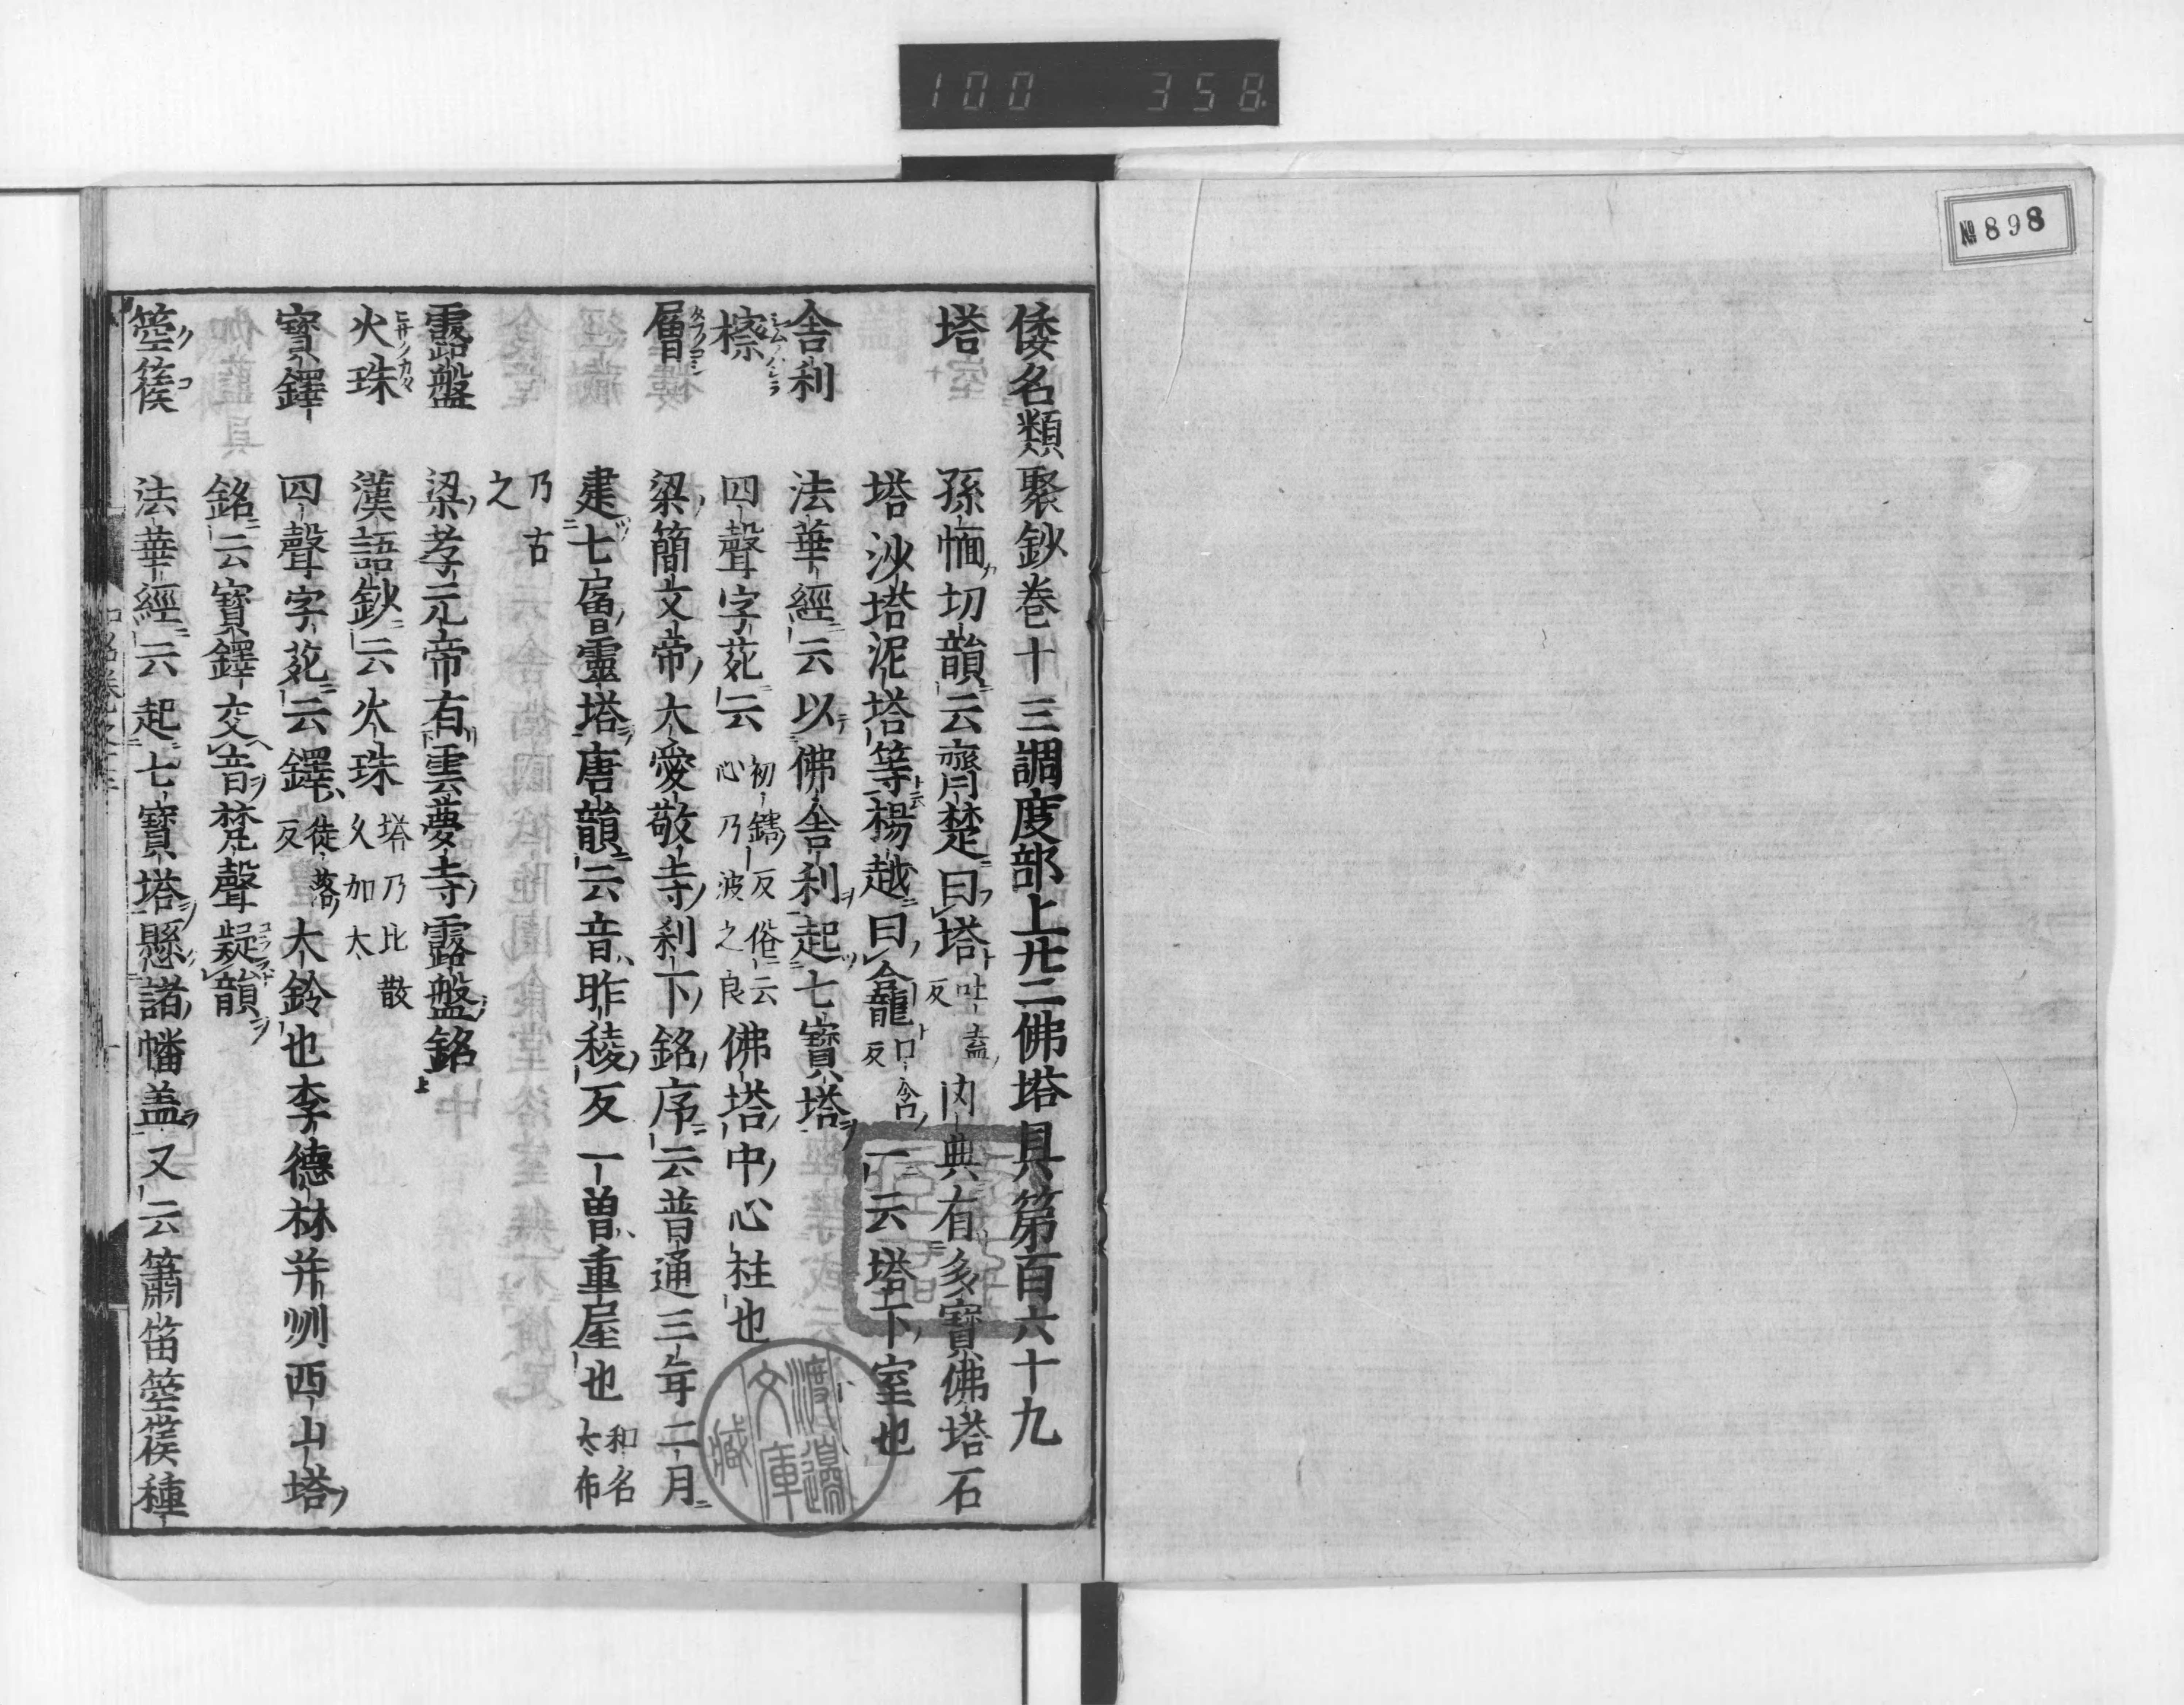 100 358
№898
倭名類聚鈔卷十三調度部上廿二佛塔具第百六十九
塔 孫愐切韻云齊楚曰塔吐盍反内典有多寶佛塔石
塔沙塔泥塔等楊越曰龕口含反一云塔下室也
舎利 法華經云以佛舎利起七寳塔
檫 四聲字苑云初鎋反俗云心乃波之良佛塔中心柱也
層 梁簡文帝大愛敬寺刹下銘序云普通三年二月
建七層靈塔唐韻云音昨稜反一曽重屋也和名太布
乃古之
露盤 梁孝元帝有雲夢寺露盤銘
火珠 漢語鈔云火珠塔乃比散久加太
寳鐸 四聲字苑云鐸徒落反大鈴也李德林并州西山塔
銘云寳鐸交音梵聲凝韻
箜篌 法華經云起七寳塔懸諸幡盖又云簫笛箜篌種
渡邊文庫藏